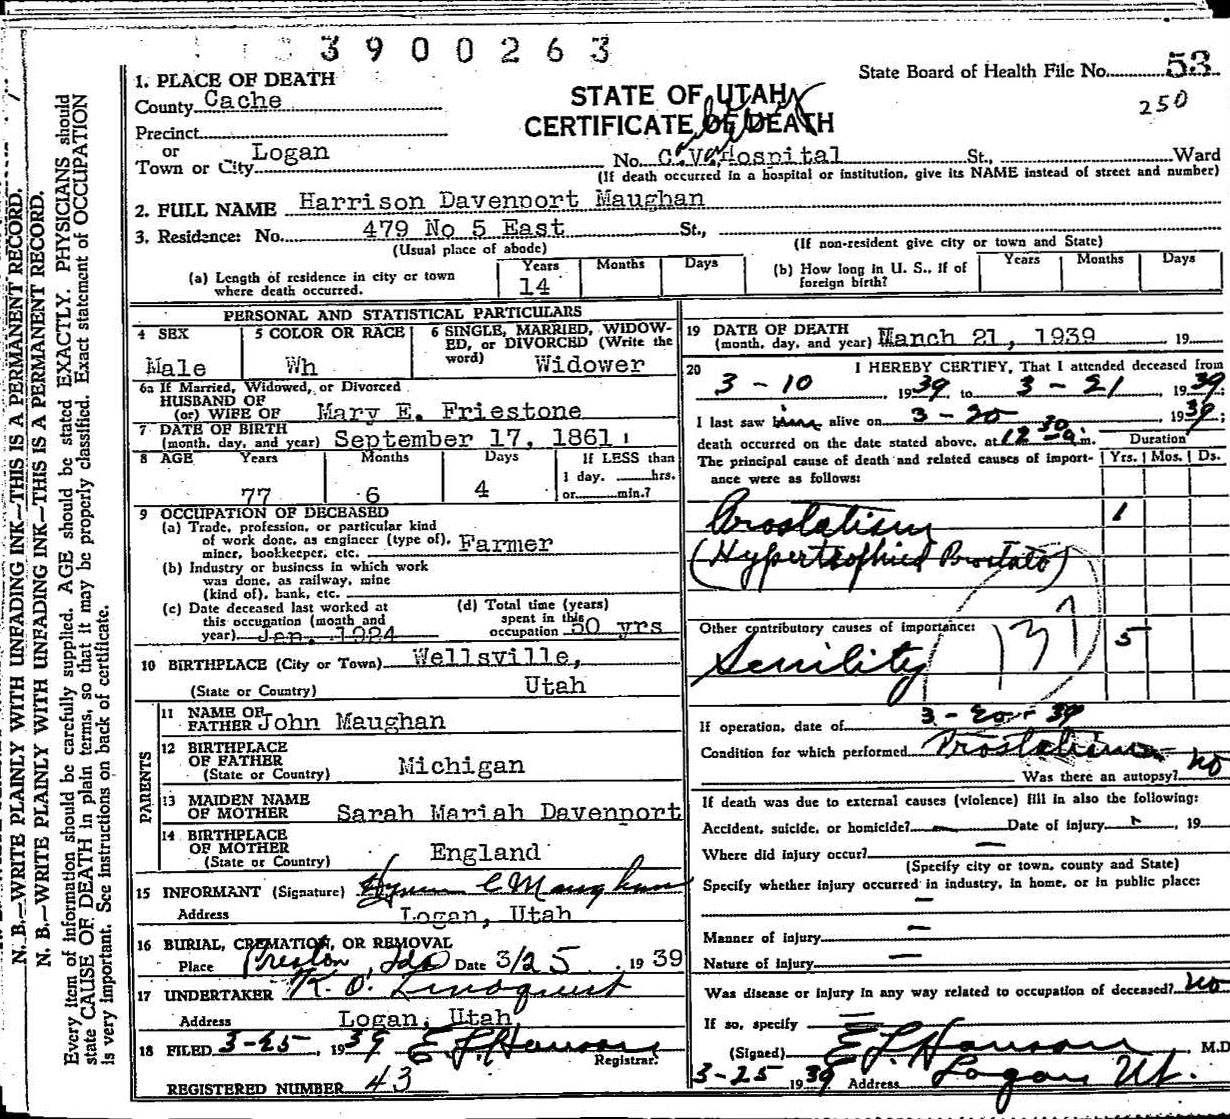 3900263
State Board of Health File No. 53
250
1. PLACE OF DEATH
County Cache
STATE OF UTAH
CERTIFICATE OF DEATH
Precinct
or
Town or City Logan
No. C.V. Hospital St., Ward
(If death occurred in a hospital or institution, give its NAME instead of street and number)
2. FULL NAME Harrison Davenport Maughan
3. Residence: No. 479 No 5 East St.,
(Usual place of abode)
(If non-resident give city or town and State)
(a) Length of residence in city or town where death occurred.
Years 14 Months Days
(b) How long in U. S., if of foreign birth?
Years Months Days
PERSONAL AND STATISTICAL PARTICULARS
4 SEX Male
5 COLOR OR RACE Wh
6 SINGLE, MARRIED, WIDOWED, or DIVORCED (Write the word) Widower
6a If Married, Widowed, or Divorced
HUSBAND OF
(or) WIFE OF Mary E. Friestone
7 DATE OF BIRTH
(month, day, and year) September 17, 1861
8 AGE Years 77 Months 6 Days 4
If LESS than 1 day, hrs. or min.?
9 OCCUPATION OF DECEASED
(a) Trade, profession, or particular kind
of work done, as engineer (type of),
miner, bookkeeper, etc. Farmer
(b) Industry or business in which work
was done, as railway, mine
(kind of), bank, etc.
(c) Date deceased last worked at
this occupation (month and
year) Jan. 1924
(d) Total time (years)
spent in this
occupation 50 yrs
10 BIRTHPLACE (City or Town) Wellsville,
(State or Country) Utah
PARENTS
11 NAME OF
FATHER John Maughan
12 BIRTHPLACE
OF FATHER
(State or Country) Michigan
13 MAIDEN NAME
OF MOTHER Sarah Mariah Davenport
14 BIRTHPLACE
OF MOTHER
(State or Country) England
15 INFORMANT (Signature) Hyrum C Maughan
Address Logan, Utah
16 BURIAL, CREMATION, OR REMOVAL
Place Preston, Ida Date 3/25, 1939
17 UNDERTAKER K. O. Lindquist
Address Logan, Utah
18 FILED 3-25, 1939 E L Hanson
Registrar.
REGISTERED NUMBER 43
19 DATE OF DEATH
(month, day, and year) March 21, 1939 19
20 I HEREBY CERTIFY, That I attended deceased from
3-10, 1939, to 3-21, 1939;
I last saw him alive on 3-20, 1939;
death occurred on the date stated above, at 12 30 a m.
Duration
The principal cause of death and related causes of importance were as follows:
Yrs. Mos. Ds.
Prostatism 1
(Hypertrophied Prostate)
137
Other contributory causes of importance:
Senility 5
If operation, date of 3-20-39
Condition for which performed Prostatism
Was there an autopsy? no
If death was due to external causes (violence) fill in also the following:
Accident, suicide, or homicide? — Date of injury , 19
Where did injury occur? —
(Specify city or town, county and State)
Specify whether injury occurred in industry, in home, or in public place:
—
Manner of injury —
Nature of injury —
Was disease or injury in any way related to occupation of deceased? no
If so, specify —
(Signed) E L Hanson M.D
3-25 1939 Address Logan Ut.
N. B.—WRITE PLAINLY WITH UNFADING INK—THIS IS A PERMANENT RECORD.
N. B.—WRITE PLAINLY WITH UNFADING INK—THIS IS A PERMANENT RECORD.
Every item of information should be carefully supplied. AGE should be stated EXACTLY. PHYSICIANS should
state CAUSE OF DEATH in plain terms, so that it may be properly classified. Exact statement of OCCUPATION
is very important. See instructions on back of certificate.